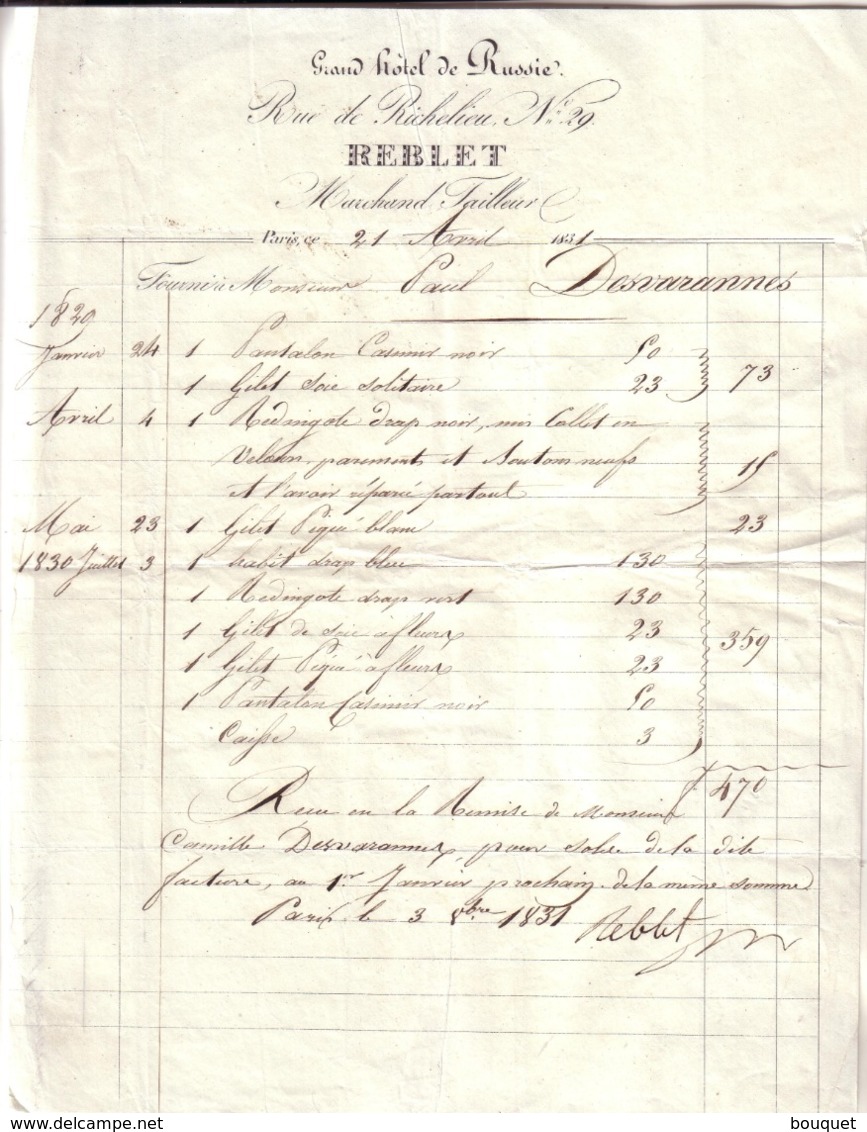 Grand hôtel de Russie.
Rue de Richelieu, N.º 29.
REBLET
Marchand Tailleur
Paris, ce 21 Avril 1831
Fourni à Monsieur Paul Desvarannes
1829
Janvier 24 1 Pantalon Casimir noir 50
1 Gilet soie solitaire 23 73
Avril 4 1 Redingote drap noir, mis Collet en
Velours, parements et boutons neufs 15
et l'avoir réparé partout
Mai 23 1 Gilet Piqué blanc 23
1830 Juillet 3 1 habit drap bleu 130
1 Redingote drap vert 130
1 Gilet de soie à fleurs 23 359
1 Gilet Piqué à fleurs 23
1 Pantalon Casimir noir 50
Caisse 3
f 470
Reçu en la Remise de Monsieur
Camille Desvarannes, pour solde de la dite
facture, au 1er Janvier prochain de la même somme
Paris le 3 8bre 1831 Reblet
bouquet